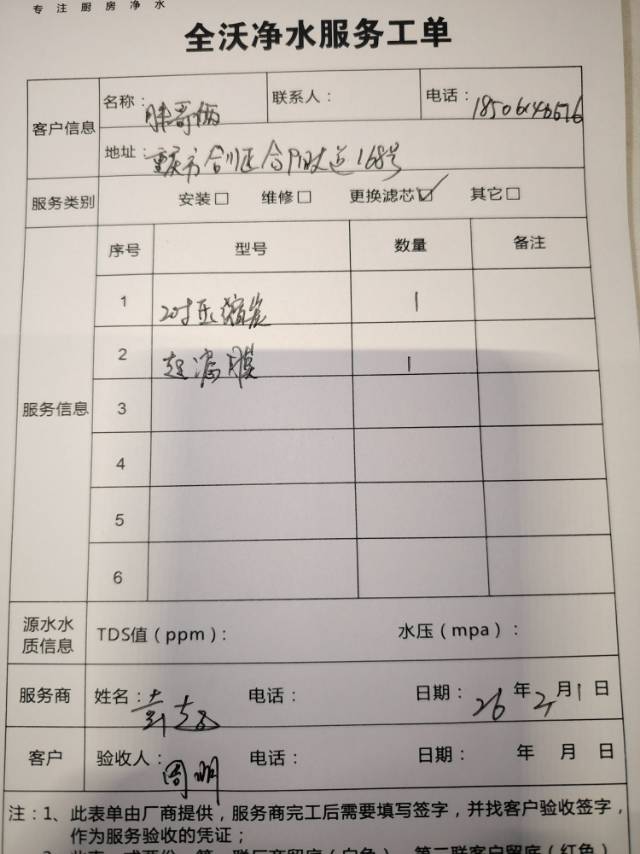 专注厨房净水
全沃净水服务工单
客户信息
名称： 胖哥俩 联系人： 电话：
地址：重庆市合川区合阳大道168号
服务类别 安装□ 维修□ 更换滤芯☑ 其它□
服务信息
序号 型号 数量 备注
1 20寸压缩炭 1
2 超滤膜 1
3
4
5
6
源水水质信息 TDS值（ppm）： 水压（mpa）：
服务商 姓名： 电话： 日期： 26 年 2 月 1 日
客户 验收人： 周明 电话： 日期： 年 月 日
注：1、此表单由厂商提供，服务商完工后需要填写签字，并找客户验收签字，
作为服务验收的凭证；